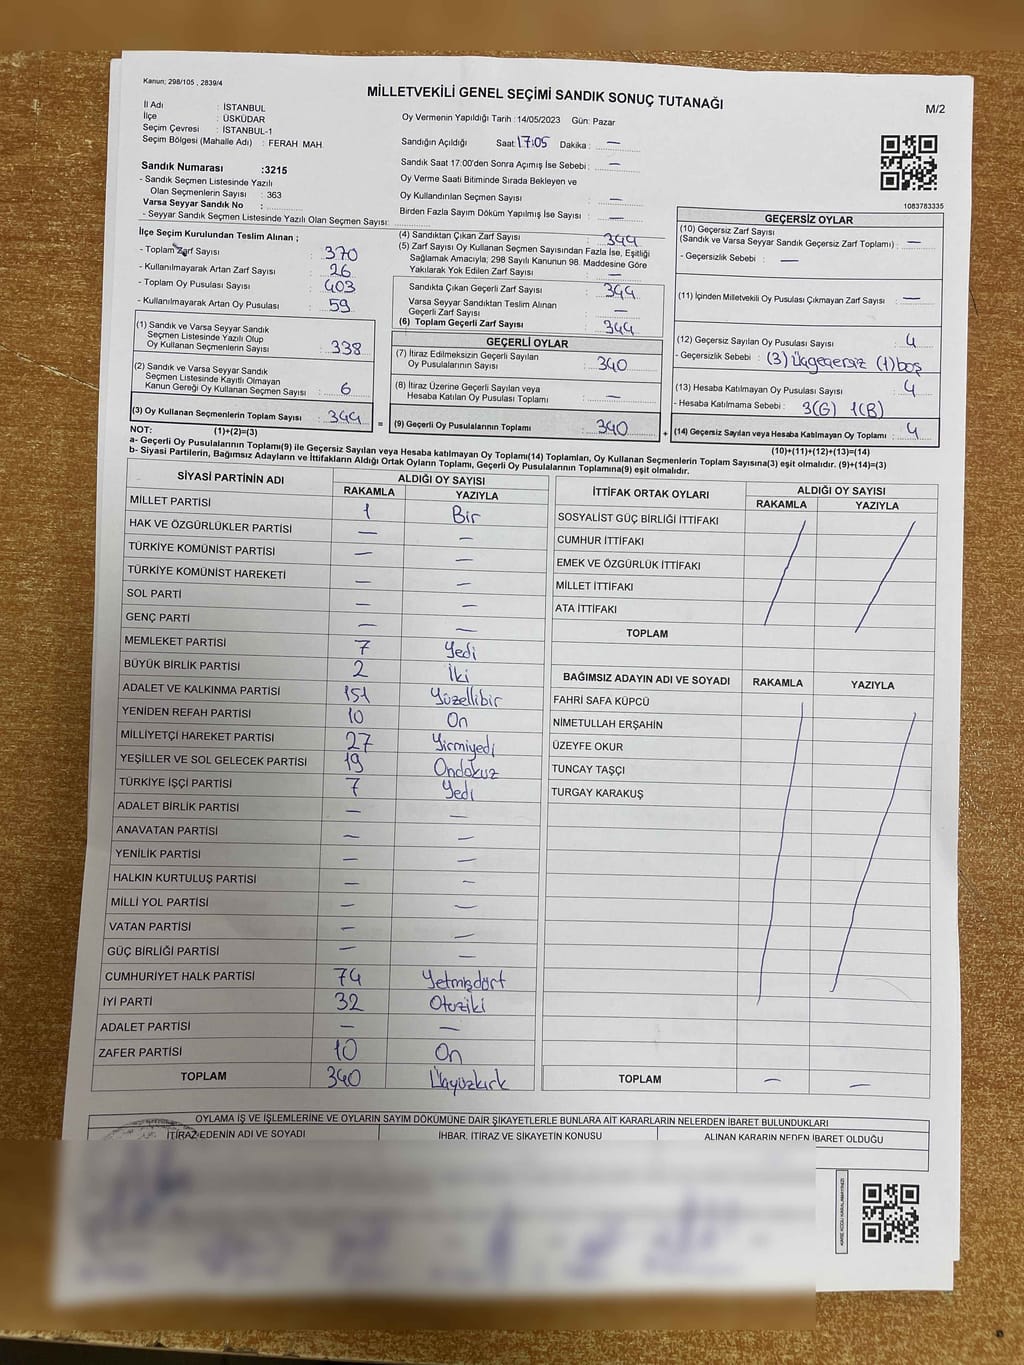 Kanun; 298/105 , 2839/4
MİLLETVEKİLİ GENEL SEÇİMİ SANDIK SONUÇ TUTANAĞI
M/2
İl Adı : İSTANBUL
İlçe : ÜSKÜDAR
Seçim Çevresi : İSTANBUL-1
Seçim Bölgesi (Mahalle Adı) : FERAH MAH.
Oy Vermenin Yapıldığı Tarih : 14/05/2023 Gün: Pazar
Sandığın Açıldığı Saat: 17:05 Dakika : —
Sandık Saat 17:00'den Sonra Açımış İse Sebebi : —
Oy Verme Saati Bitiminde Sırada Bekleyen ve
Oy Kullandırılan Seçmen Sayısı : —
Birden Fazla Sayım Döküm Yapılmış İse Sayısı : —
1083783335
Sandık Numarası :3215
- Sandık Seçmen Listesinde Yazılı
Olan Seçmenlerin Sayısı : 363
Varsa Seyyar Sandık No :
- Seyyar Sandık Seçmen Listesinde Yazılı Olan Seçmen Sayısı:
İlçe Seçim Kurulundan Teslim Alınan ;
- Toplam Zarf Sayısı : 370
- Kullanılmayarak Artan Zarf Sayısı : 26
- Toplam Oy Pusulası Sayısı : 403
- Kullanılmayarak Artan Oy Pusulası : 59
(1) Sandık ve Varsa Seyyar Sandık
Seçmen Listesinde Yazılı Olup
Oy Kullanan Seçmenlerin Sayısı : 338
(2) Sandık ve Varsa Seyyar Sandık
Seçmen Listesinde Kayıtlı Olmayan
Kanun Gereği Oy Kullanan Seçmen Sayısı : 6
(3) Oy Kullanan Seçmenlerin Toplam Sayısı : 344
(4) Sandıktan Çıkan Zarf Sayısı : 344
(5) Zarf Sayısı Oy Kullanan Seçmen Sayısından Fazla İse, Eşitliği
Sağlamak Amacıyla; 298 Sayılı Kanunun 98. Maddesine Göre
Yakılarak Yok Edilen Zarf Sayısı : —
Sandıkta Çıkan Geçerli Zarf Sayısı : 344
Varsa Seyyar Sandıktan Teslim Alınan
Geçerli Zarf Sayısı : —
(6) Toplam Geçerli Zarf Sayısı : 344
GEÇERLİ OYLAR
(7) İtiraz Edilmeksizin Geçerli Sayılan
Oy Pusulasının Sayısı : 340
(8) İtiraz Üzerine Geçerli Sayılan veya
Hesaba Katılan Oy Pusulası Toplamı : —
= (9) Geçerli Oy Pusulalarının Toplamı : 340 +
GEÇERSİZ OYLAR
(10) Geçersiz Zarf Sayısı
(Sandık ve Varsa Seyyar Sandık Geçersiz Zarf Toplamı) : —
- Geçersizlik Sebebi : —
(11) İçinden Milletvekili Oy Pusulası Çıkmayan Zarf Sayısı : —
(12) Geçersiz Sayılan Oy Pusulası Sayısı : 4
- Geçersizlik Sebebi : (3) Üçgeçersiz (1) boş
(13) Hesaba Katılmayan Oy Pusulası Sayısı : 4
- Hesaba Katılmama Sebebi : 3(G) 1(B)
(14) Geçersiz Sayılan veya Hesaba Katılmayan Oy Toplamı : 4
NOT: (1)+(2)=(3) (10)+(11)+(12)+(13)=(14)
a- Geçerli Oy Pusulalarının Toplamı(9) ile Geçersiz Sayılan veya Hesaba katılmayan Oy Toplamı(14) Toplamları, Oy Kullanan Seçmenlerin Toplam Sayısına(3) eşit olmalıdır. (9)+(14)=(3)
b- Siyasi Partilerin, Bağımsız Adayların ve İttifakların Aldığı Ortak Oyların Toplamı, Geçerli Oy Pusulalarının Toplamına(9) eşit olmalıdır.
SİYASİ PARTİNİN ADI ALDIĞI OY SAYISI
RAKAMLA YAZIYLA
MİLLET PARTİSİ 1 Bir
HAK VE ÖZGÜRLÜKLER PARTİSİ — —
TÜRKİYE KOMÜNİST PARTİSİ — —
TÜRKİYE KOMÜNİST HAREKETİ — —
SOL PARTİ — —
GENÇ PARTİ — —
MEMLEKET PARTİSİ 7 Yedi
BÜYÜK BİRLİK PARTİSİ 2 İki
ADALET VE KALKINMA PARTİSİ 151 Yüzellibir
YENİDEN REFAH PARTİSİ 10 On
MİLLİYETÇİ HAREKET PARTİSİ 27 Yirmiyedi
YEŞİLLER VE SOL GELECEK PARTİSİ 19 Ondokuz
TÜRKİYE İŞÇİ PARTİSİ 7 Yedi
ADALET BİRLİK PARTİSİ — —
ANAVATAN PARTİSİ — —
YENİLİK PARTİSİ — —
HALKIN KURTULUŞ PARTİSİ — —
MİLLİ YOL PARTİSİ — —
VATAN PARTİSİ — —
GÜÇ BİRLİĞİ PARTİSİ — —
CUMHURİYET HALK PARTİSİ 74 Yetmişdört
İYİ PARTİ 32 Otuziki
ADALET PARTİSİ — —
ZAFER PARTİSİ 10 On
TOPLAM 340 Üçyüzkırk
İTTİFAK ORTAK OYLARI ALDIĞI OY SAYISI
RAKAMLA YAZIYLA
SOSYALİST GÜÇ BİRLİĞİ İTTİFAKI
CUMHUR İTTİFAKI
EMEK VE ÖZGÜRLÜK İTTİFAKI
MİLLET İTTİFAKI
ATA İTTİFAKI
TOPLAM
BAĞIMSIZ ADAYIN ADI VE SOYADI RAKAMLA YAZIYLA
FAHRİ SAFA KÜPCÜ
NİMETULLAH ERŞAHİN
ÜZEYFE OKUR
TUNCAY TAŞÇI
TURGAY KARAKUŞ
TOPLAM — —
OYLAMA İŞ VE İŞLEMLERİNE VE OYLARIN SAYIM DÖKÜMÜNE DAİR ŞİKAYETLERLE BUNLARA AİT KARARLARIN NELERDEN İBARET BULUNDUKLARI
İTİRAZ EDENİN ADI VE SOYADI İHBAR, İTİRAZ VE ŞİKAYETİN KONUSU ALINAN KARARIN NEDEN İBARET OLDUĞU